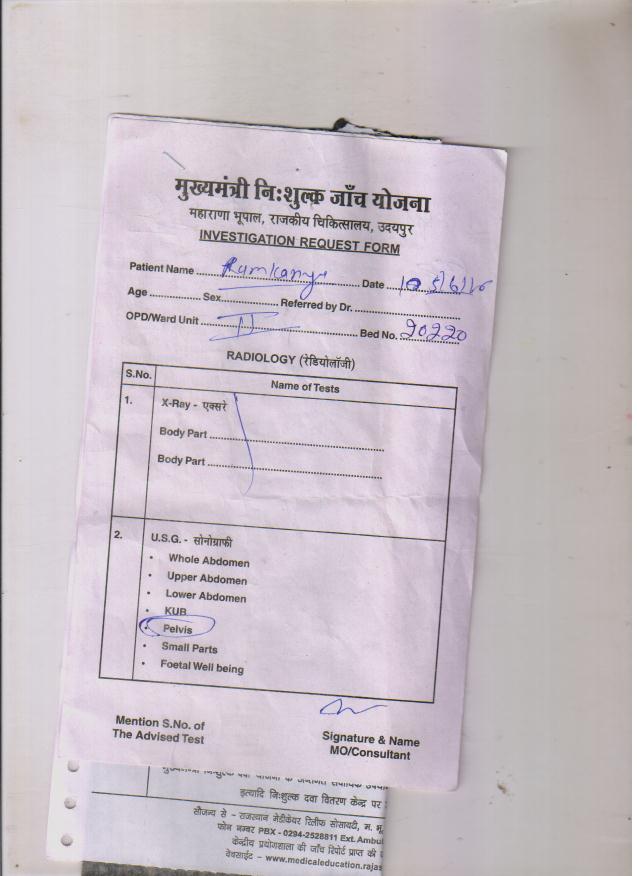 मुख्यमंत्री नि:शुल्क जाँच योजना
महाराणा भूपाल, राजकीय चिकित्सालय, उदयपुर
INVESTIGATION REQUEST FORM
Patient Name ........ Ramkanya ........ Date
Age ............ Sex ............ Referred by Dr. ............
OPD/Ward Unit ........ II ........ Bed No. 20220
RADIOLOGY (रेडियोलॉजी)
S.No. Name of Tests
1. X-Ray - एक्सरे
Body Part ............
Body Part ............
2. U.S.G. - सोनोग्राफी
• Whole Abdomen
• Upper Abdomen
• Lower Abdomen
• KUB
• Pelvis
• Small Parts
• Foetal Well being
Mention S.No. of
The Advised Test
Signature & Name
MO/Consultant
इत्यादि निःशुल्क दवा वितरण केन्द्र पर
सौजन्य से – राजस्थान मेडीकेयर रिलीफ सोसायटी, म. भू.
फोन नम्बर PBX - 0294-2528811 Ext. Ambul
केन्द्रीय प्रयोगशाला की जाँच रिपोर्ट प्राप्त की
वेबसाईट – www.medicaleducation.rajas